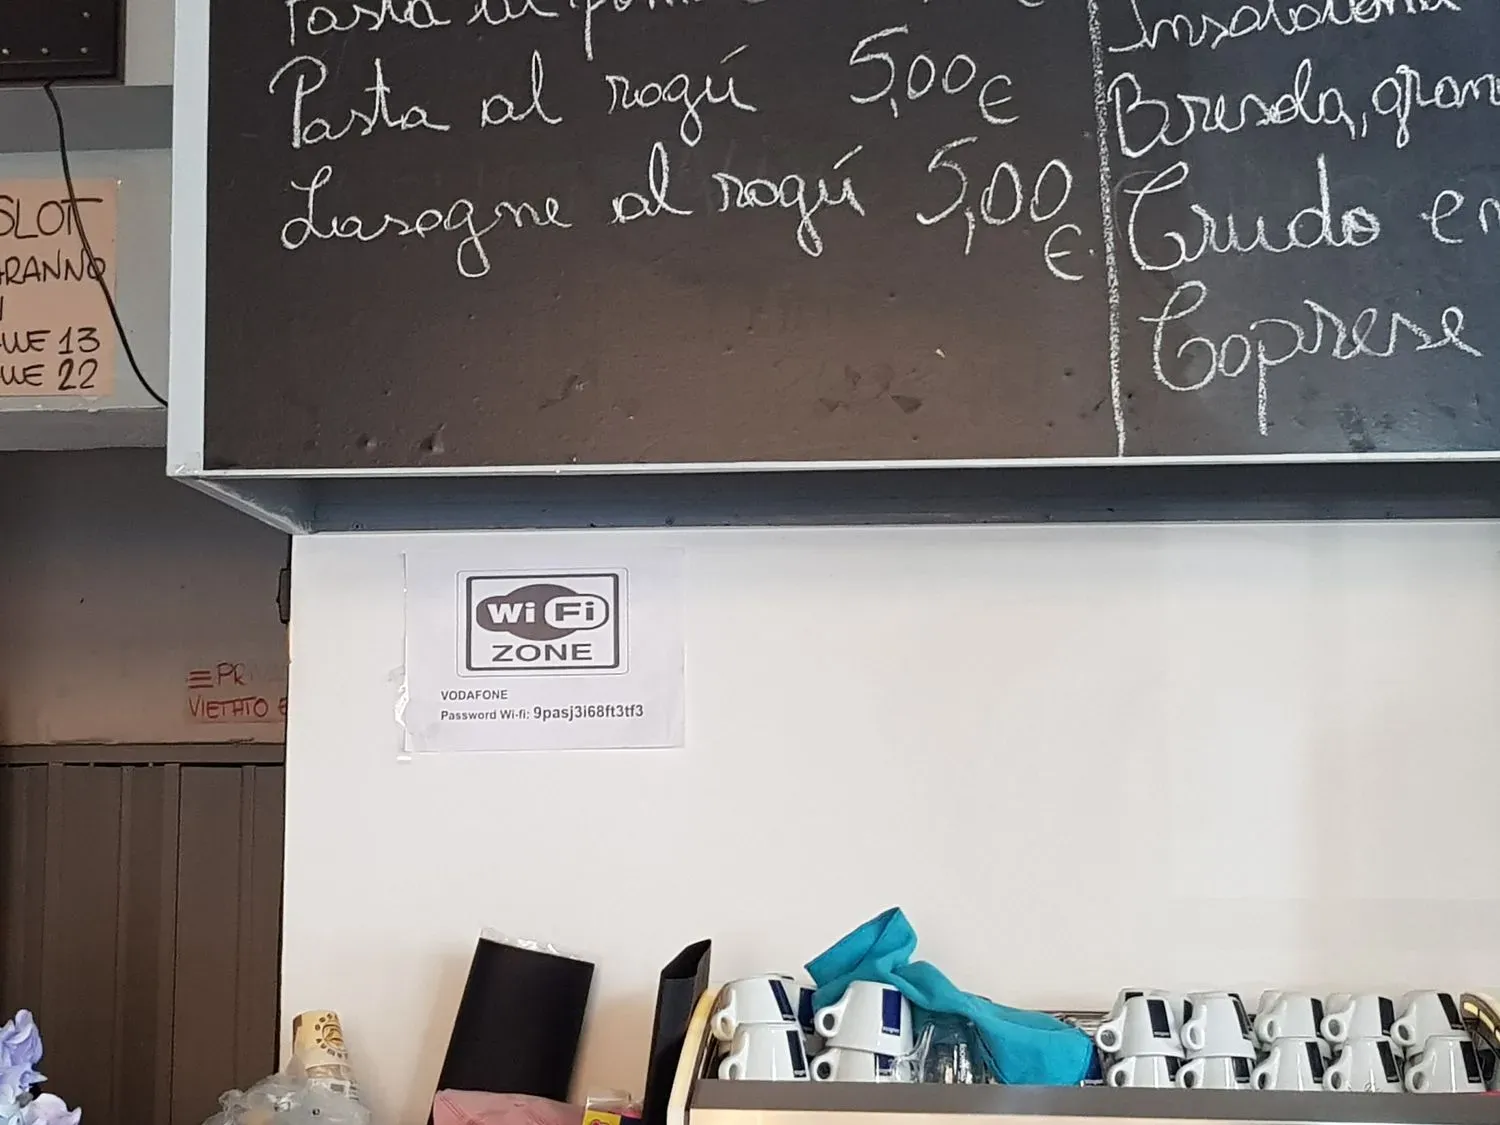 Pasta al
Pasta al ragú 5,00 €
Lasagne al ragú 5,00 €.
Insalatona
Bresaola,
Crudo
Caprese
SLOT
13
22
Wi Fi
ZONE
VODAFONE
Password Wi-fi: 9pasj3i68ft3tf3
VIETATO